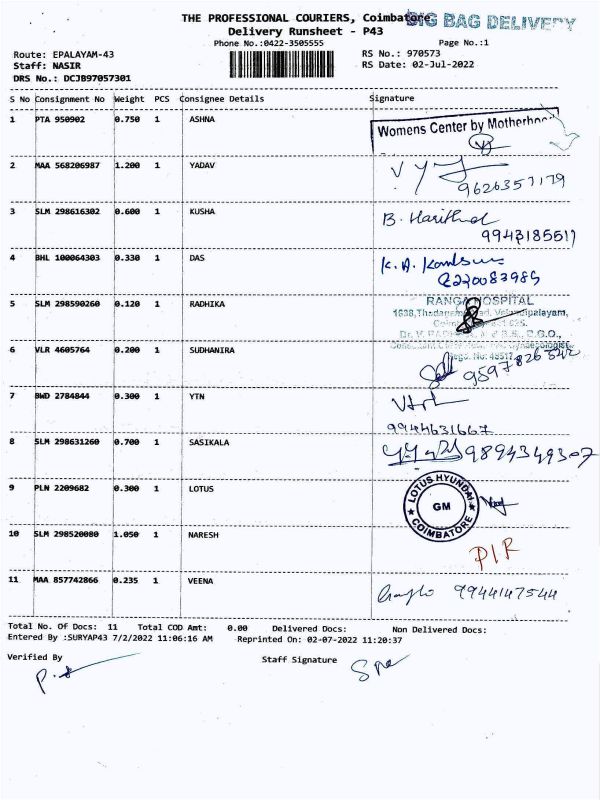 THE PROFESSIONAL COURIERS, Coimbatore
BIG BAG DELIVERY
Delivery Runsheet - P43
Phone No.:0422-3505555
Page No.:1
Route: EPALAYAM-43
RS No.: 970573
Staff: NASIR
RS Date: 02-Jul-2022
DRS No.: DCJB97057301
S No Consignment No Weight PCS Consignee Details Signature
1 PTA 950902 0.750 1 ASHNA
Womens Center by Motherhood
2 MAA 568206987 1.200 1 YADAV
9626357179
3 SLM 298616302 0.600 1 KUSHA
B. Haritha
9943185511
4 BHL 100064303 0.330 1 DAS
K. A.
5 SLM 298590260 0.120 1 RADHIKA
RANGA HOSPITAL
6 VLR 4605764 0.200 1 SUDHANIRA
7 BWD 2784844 0.300 1 YTN
9944631667
8 SLM 298631260 0.700 1 SASIKALA
9894349307
9 PLN 2209682 0.300 1 LOTUS
LOTUS HYUNDAI
GM
COIMBATORE
10 SLM 298520080 1.050 1 NARESH
PIR
11 MAA 857742866 0.235 1 VEENA
9944147544
Total No. Of Docs: 11 Total COD Amt: 0.00 Delivered Docs: Non Delivered Docs:
Entered By :SURYAP43 7/2/2022 11:06:16 AM Reprinted On: 02-07-2022 11:20:37
Verified By
Staff Signature